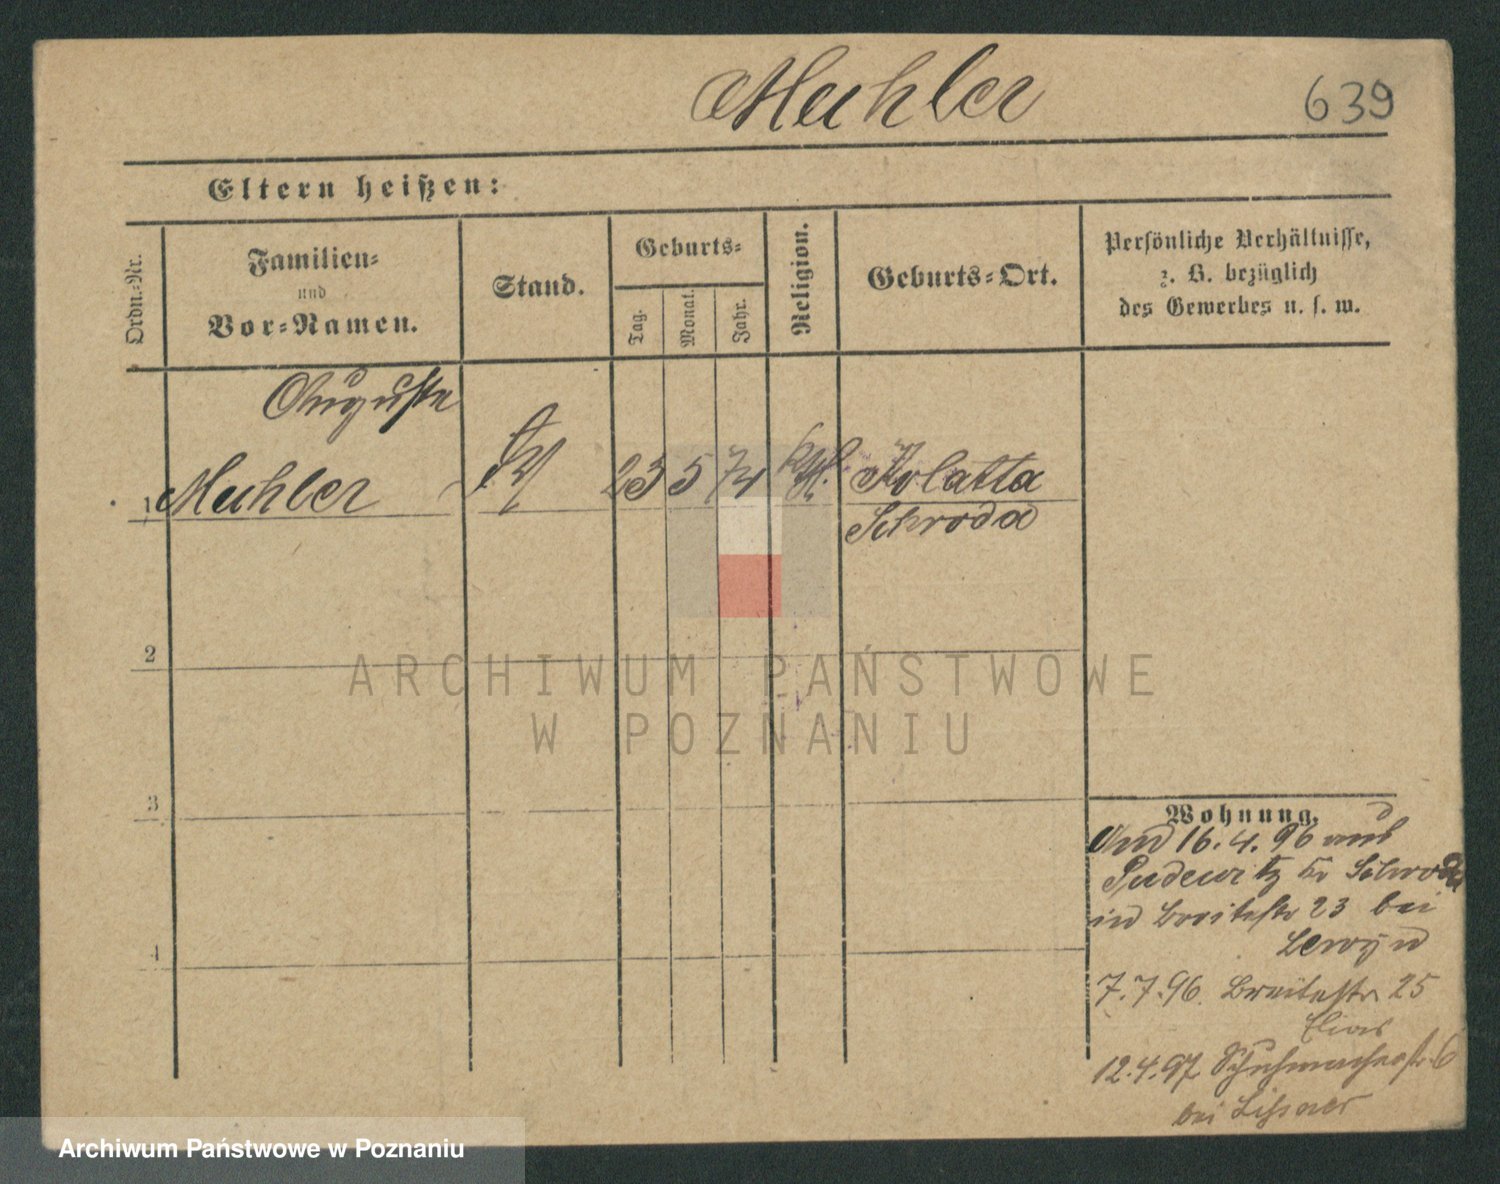 Muhler
639
Eltern heißen:
Ordn.-Nr.
Familien-
und
Vor-Namen.
Stand.
Geburts-
Tag.
Monat.
Jahr.
Religion.
Geburts-Ort.
Persönliche Verhältnisse,
z. B. bezüglich
des Gewerbes u. s. w.
Auguste
1 Muhler 23 5 74 Kolatta
Schroda
2
3
4
ARCHIWUM PAŃSTWOWE
W POZNANIU
Wohnung.
16.4.96 aus
Pudewitz Kr Schroda
in Breitestr 23 bei
7.7.96 Breitestr 25
Elias
12.4.97 Schuhmacherstr 6
bei Lissner
Archiwum Państwowe w Poznaniu